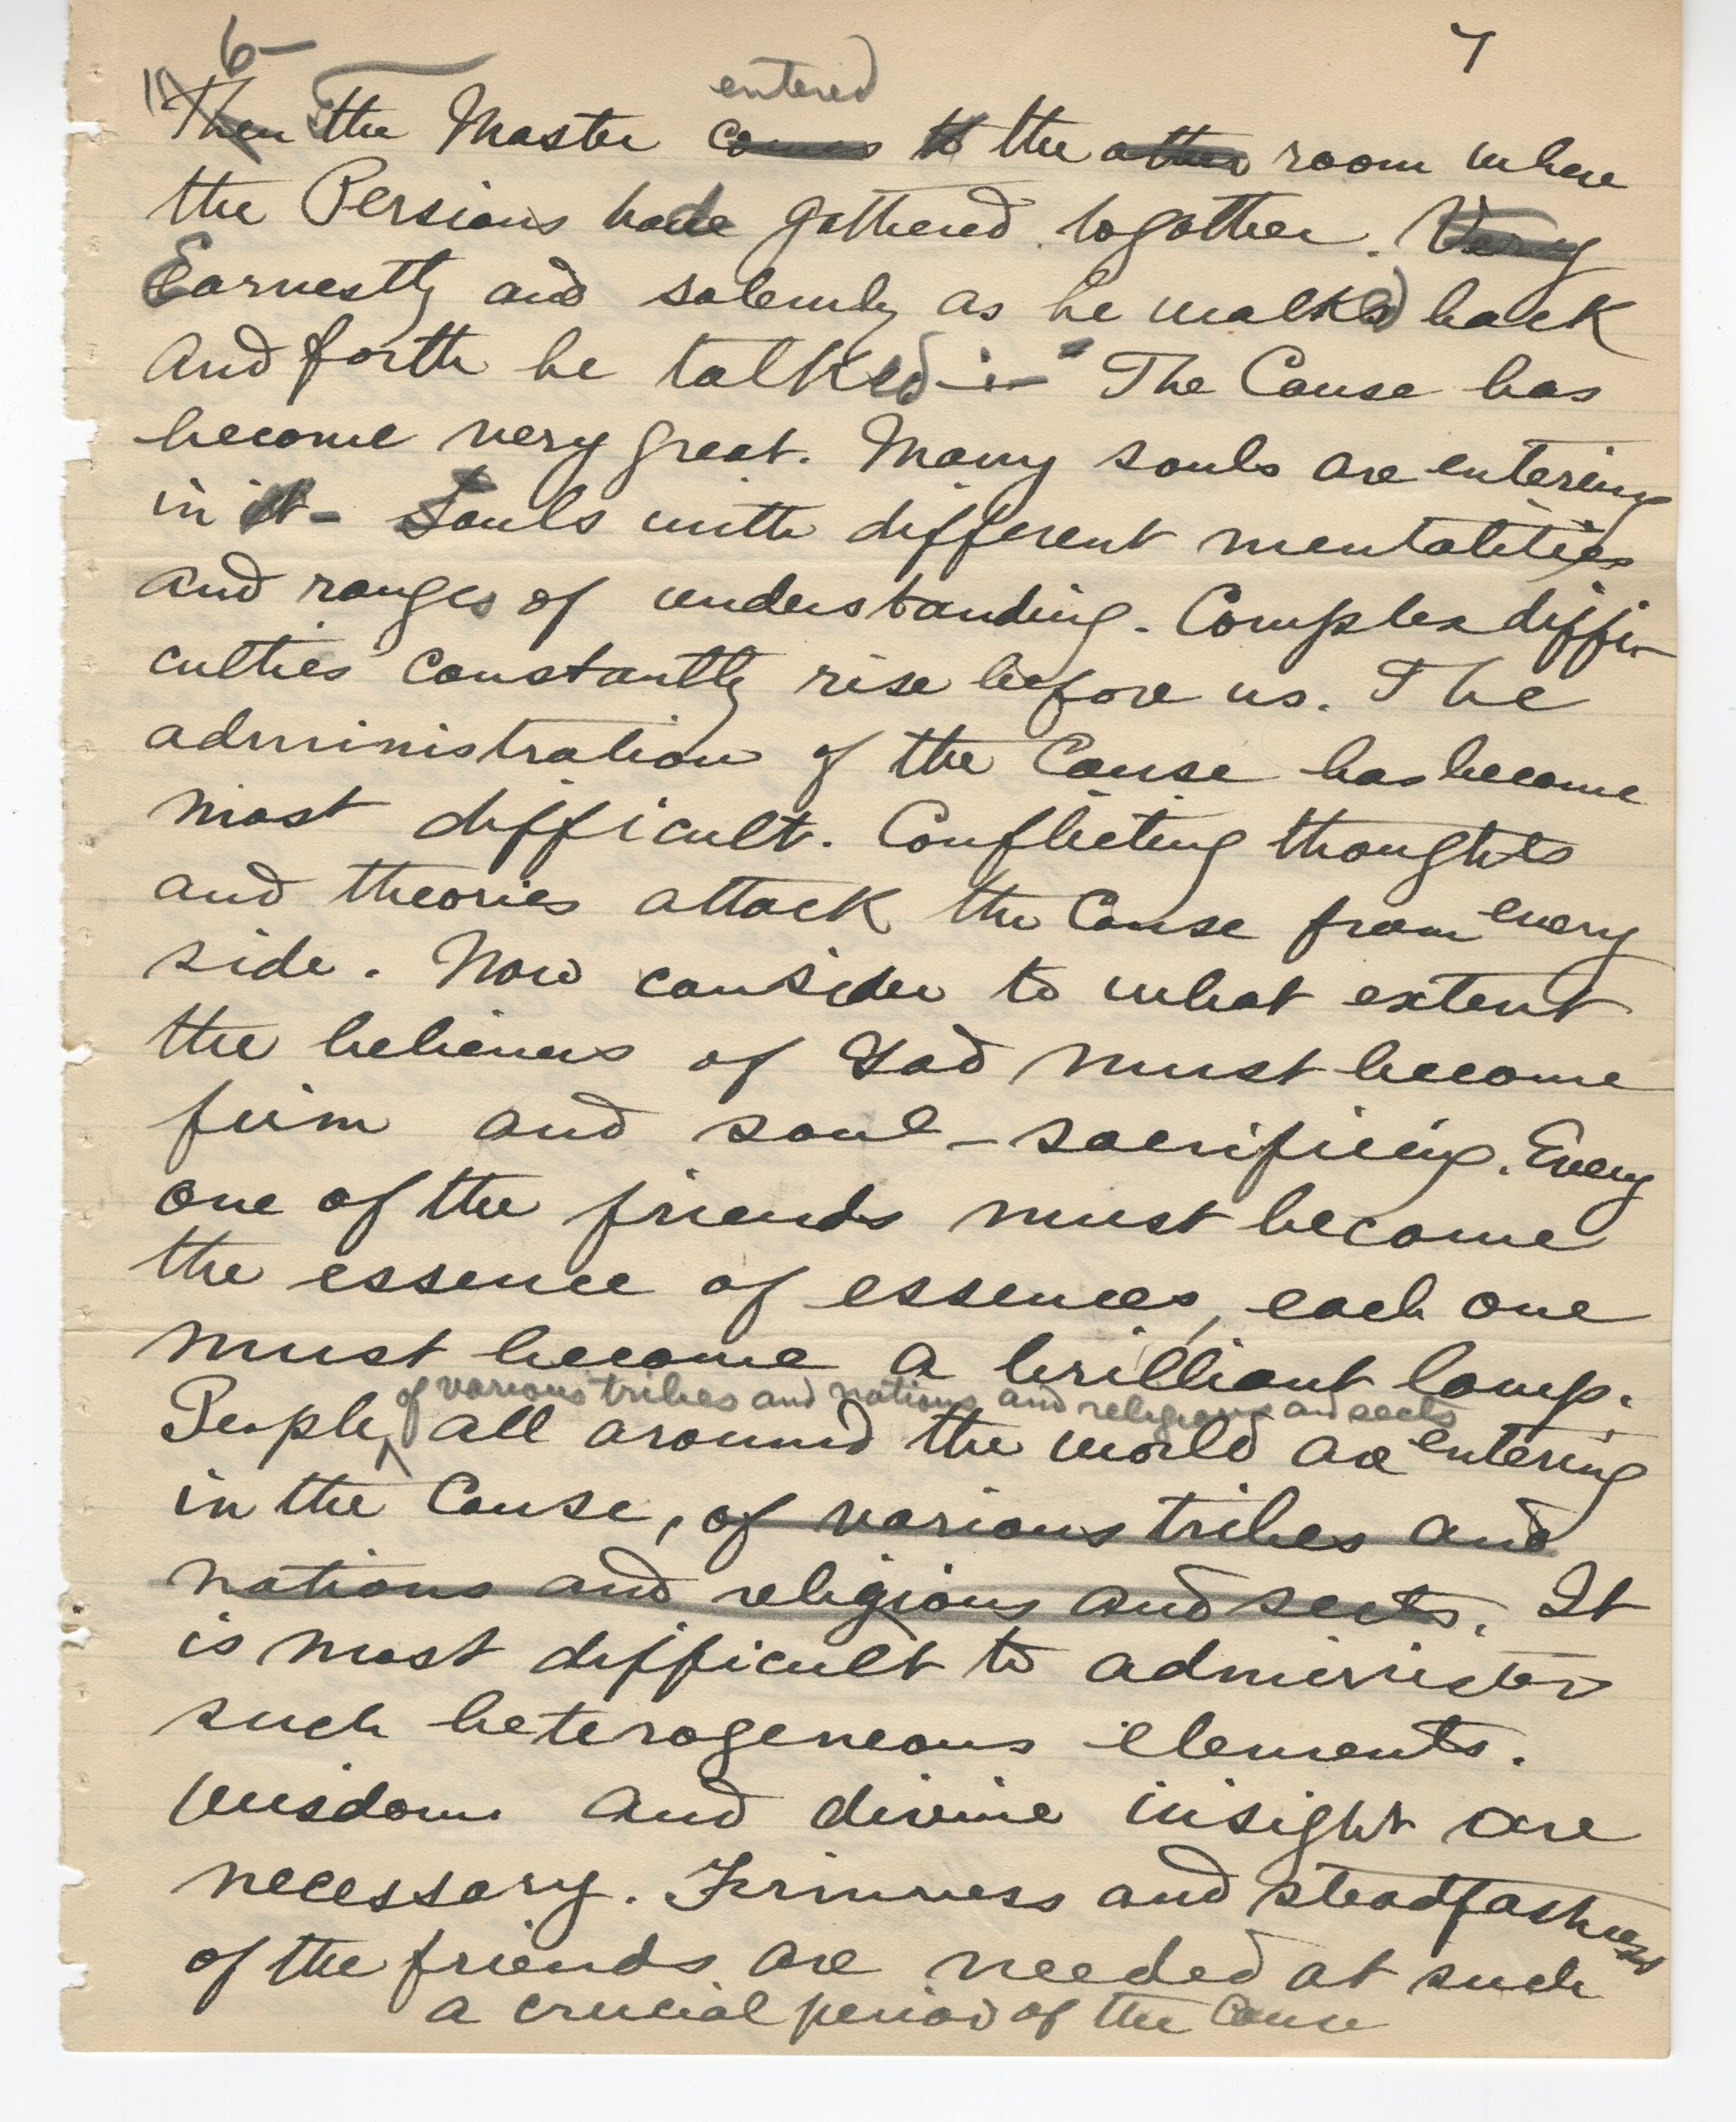 6- 7
entered
Then The Master comes to the other room where
the Persians had gathered together. Very
Earnestly and solemnly as he walked back
and forth he talked :- "The Cause has
become very great. Many souls are entering
in it - Souls with different mentalities
and ranges of understanding. Complex diffi-
culties constantly rise before us. The
administration of the Cause has become
most difficult. Conflicting thoughts
and theories attack the Cause from every
side. Now consider to what extent
the believers of God must become
firm and soul-sacrificing. Every
one of the friends must become
the essence of essences, each one
must become a brilliant lamp.
of various tribes and nations and religions and sects
People all around the world are entering
in the Cause, of various tribes and
nations and religions and sects. It
is most difficult to administer
such heterogeneous elements.
Wisdom and divine insight are
necessary. Firmness and steadfastness
of the friends are needed at such
a crucial period of the Cause